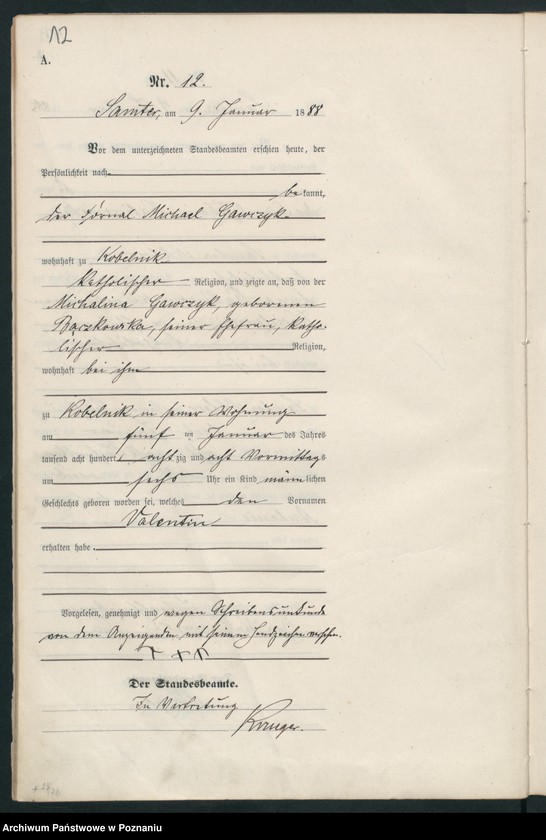 12
A.
Nr. 12.
Samter, am 9. Januar 1888
Vor dem unterzeichneten Standesbeamten erschien heute, der
Persönlichkeit nach
bekannt,
der Fornal Michael Gawczyk
wohnhaft zu Kobelnik
katholischer Religion, und zeigte an, daß von der
Michalina Gawczyk, geborenen
Bączkowska, seiner Ehefrau, katho-
lischer Religion,
wohnhaft bei ihm
zu Kobelnik in seiner Wohnung
am fünf ten Januar des Jahres
tausend acht hundert achtzig und acht Vormittags
um sechs Uhr ein Kind männlichen
Geschlechts geboren worden sei, welches den Vornamen
Valentin
erhalten habe.
Vorgelesen, genehmigt und wegen Schreibensunkunde
von dem Anzeigenden mit seinem Handzeichen versehen.
+++
Der Standesbeamte.
In Vertretung
Kruger.
Archiwum Państwowe w Poznaniu